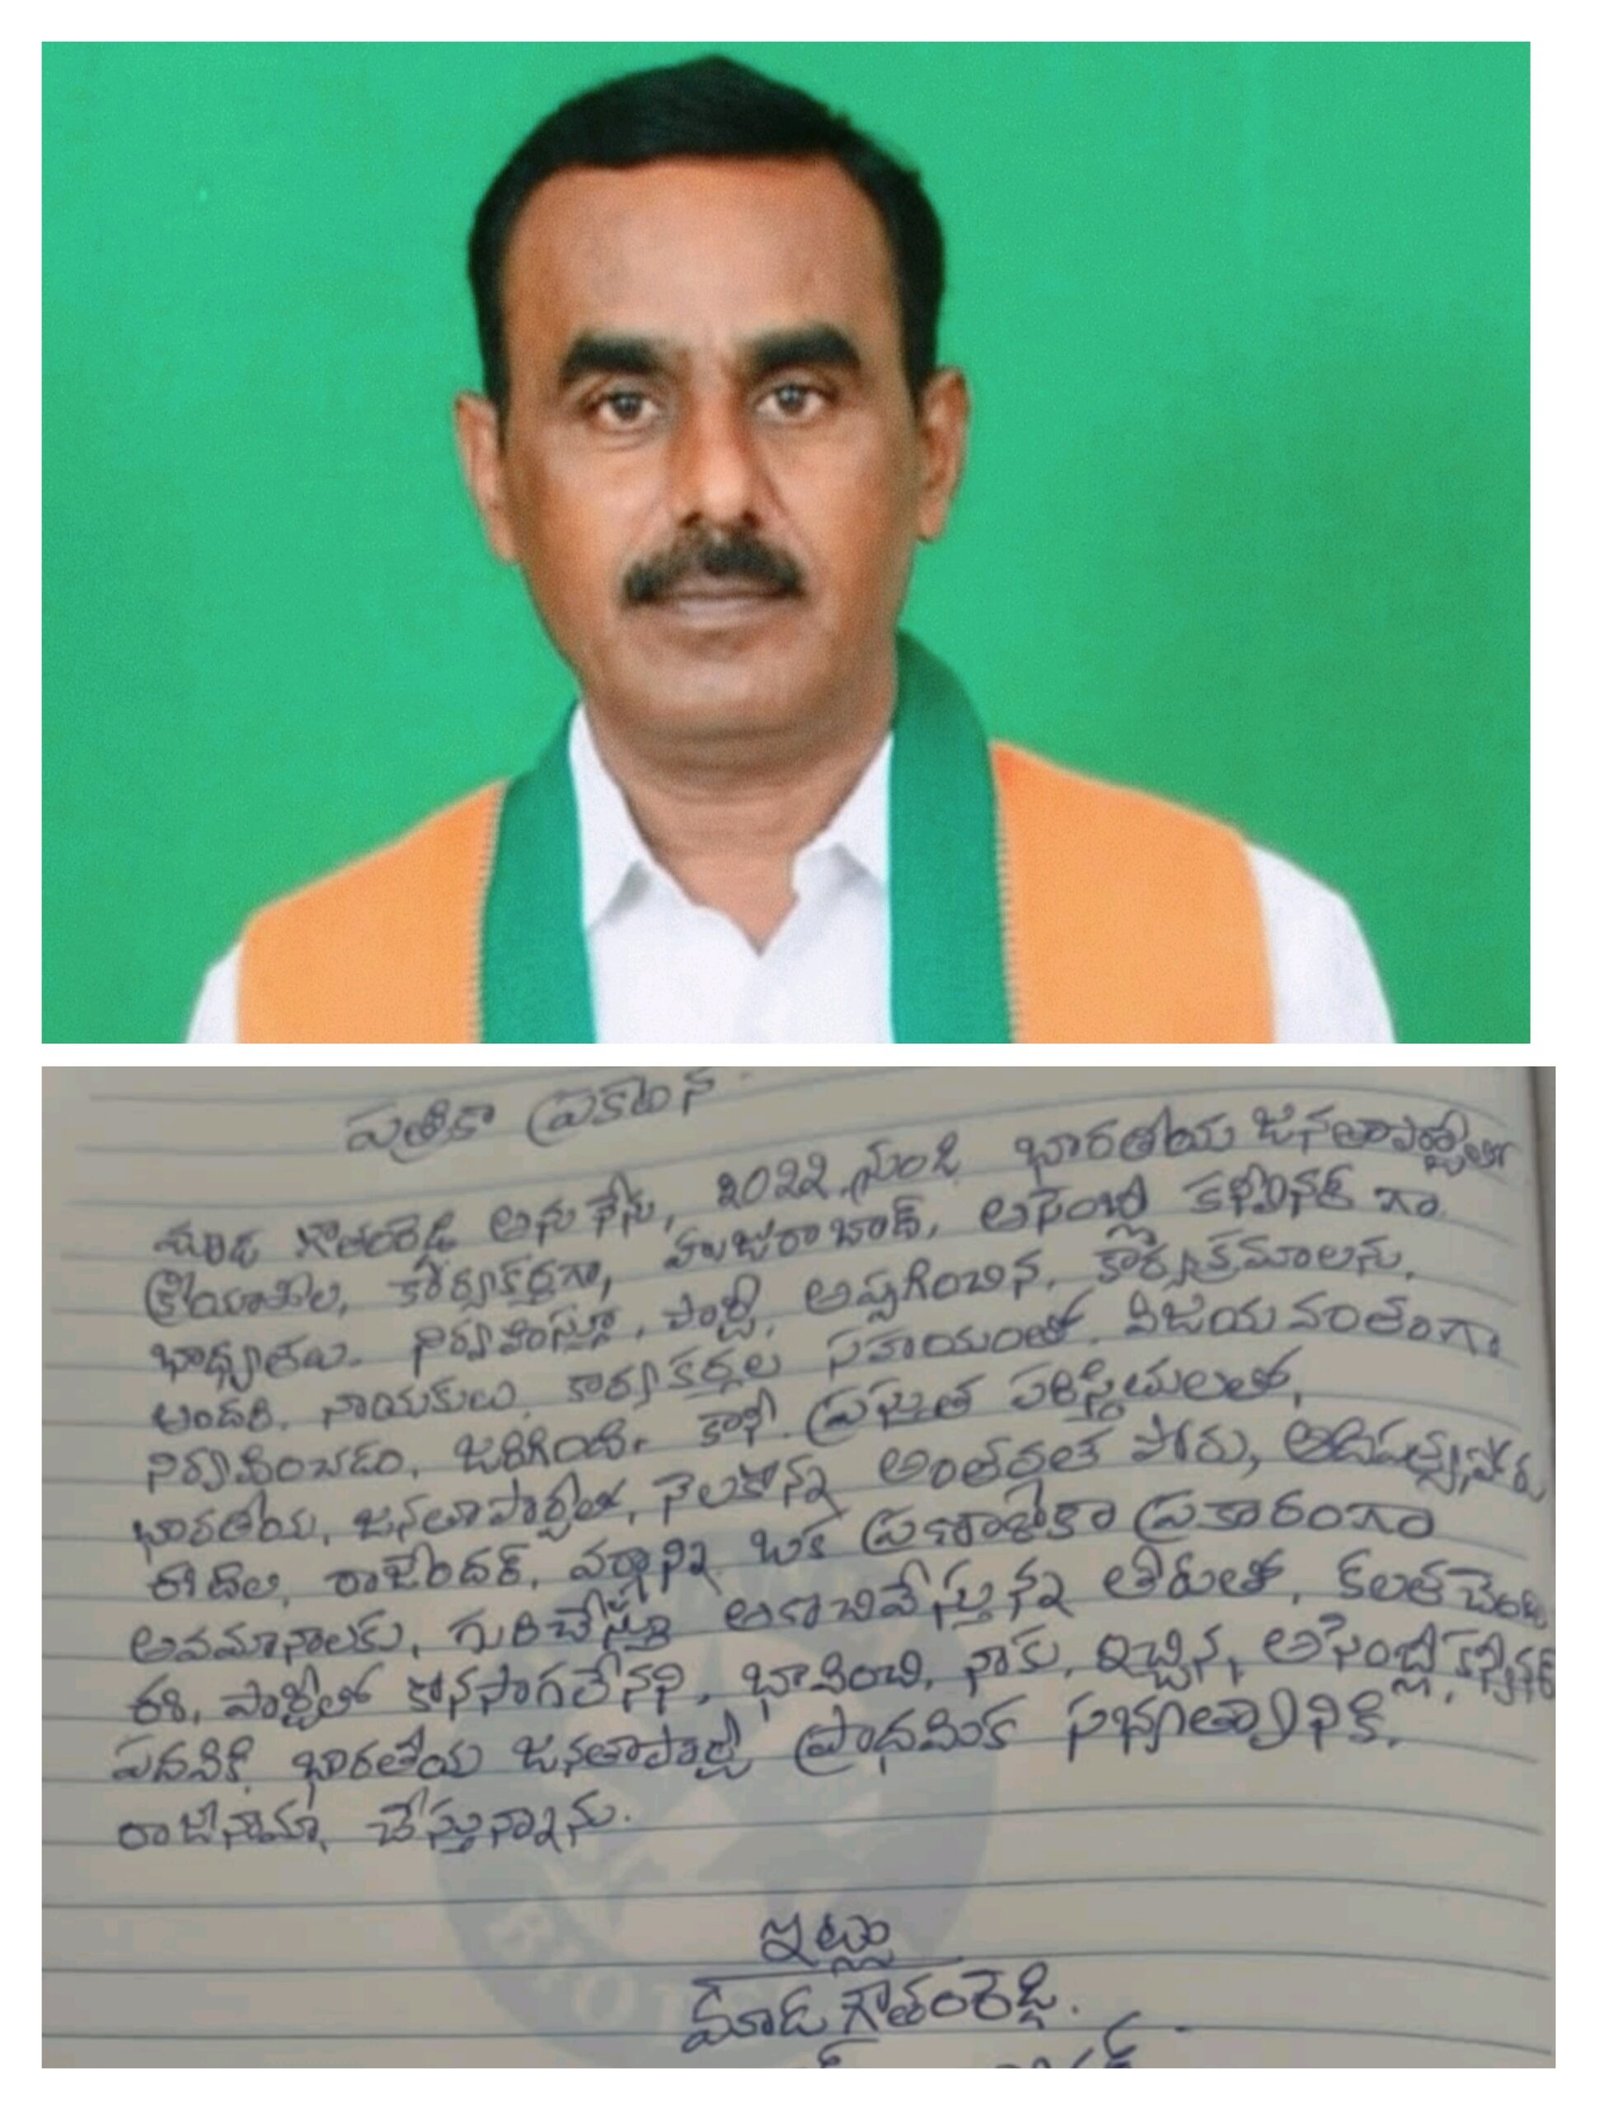 పత్రికా ప్రకటన
మాడ గౌతంరెడ్డి అను నేను, 2022 నుండి భారతీయ జనతాపార్టీలో
క్రియాశీల, కార్యకర్తగా, హుజురాబాద్, అసెంబ్లీ కన్వీనర్ గా
బాధ్యతలు నిర్వహిస్తూ, పార్టీ, అప్పగించిన, కార్యక్రమాలను,
అందరి, నాయకులు, కార్యకర్తల సహాయంతో, విజయవంతంగా
నిర్వహించడం, జరిగింది. కానీ ప్రస్తుత పరిస్థితులలో,
భారతీయ, జనతాపార్టీలో, నెలకొన్న అంతర్గత పోరు, ఆధిపత్యపోరు
ఈటెల, రాజేందర్, వర్గాన్ని ఒక ప్రణాళికా ప్రకారంగా
అవమానాలకు, గురిచేస్తూ అణచివేస్తున్న తీరుతో, కలత చెంది
ఈ, పార్టీలో కొనసాగలేనని, భావించి, నాకు, ఇచ్చిన, అసెంబ్లీ కన్వీనర్
పదవికి, భారతీయ జనతాపార్టీ ప్రాథమిక సభ్యత్వానికి,
రాజీనామా, చేస్తున్నాను.
ఇట్లు
మాడ గౌతంరెడ్డి.